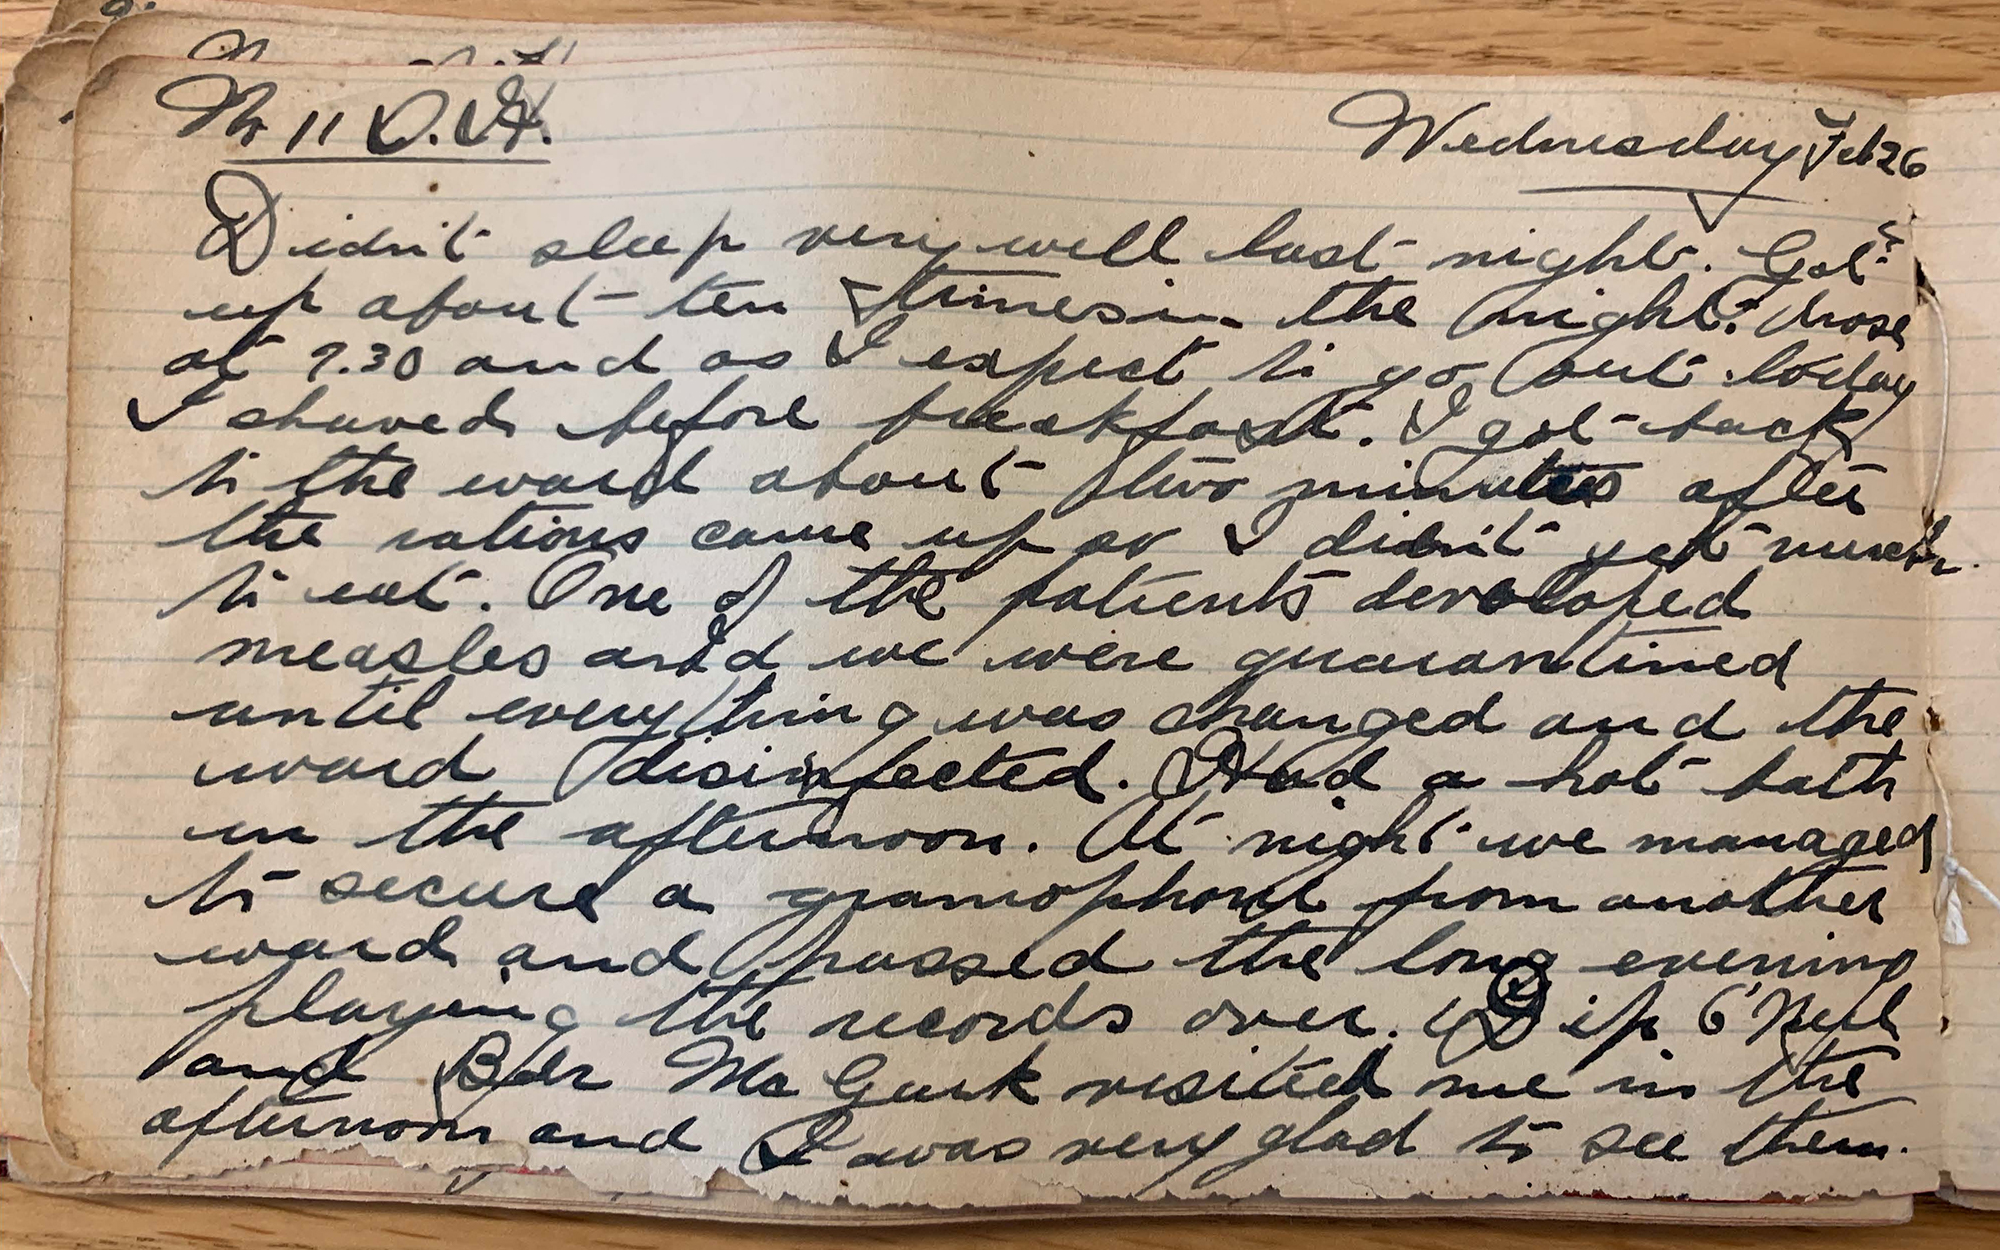 No 11 D.H. Wednesday Feb 26
Didn't sleep very well last night. Got
up about ten times in the night. Arose
at 7.30 and as I expect to go out today
I shaved before breakfast. I got back
to the ward about two minutes after
the rations came up so I didn't get much
to eat. One of the patients developed
measles and we were quarantined
until everything was changed and the
ward disinfected. Had a hot bath
in the afternoon. At night we managed
to secure a gramophone from another
ward and passed the long evening
playing the records over. O'Neil
and Bdr McGurk visited me in the
afternoon and I was very glad to see them.